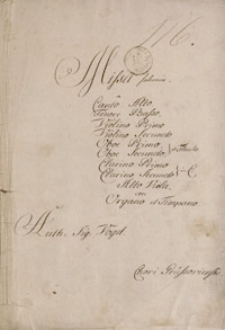 116.
Missa solemnis.
Canto Alto
Tenore Basso
Violino Primo
Violino Secundo
Oboe Primo
Oboe Secundo
Clarino Primo
Clarino Secundo
Alto Viola
con
Organo et Tympano
Auth: Sig. Vogt
Chori